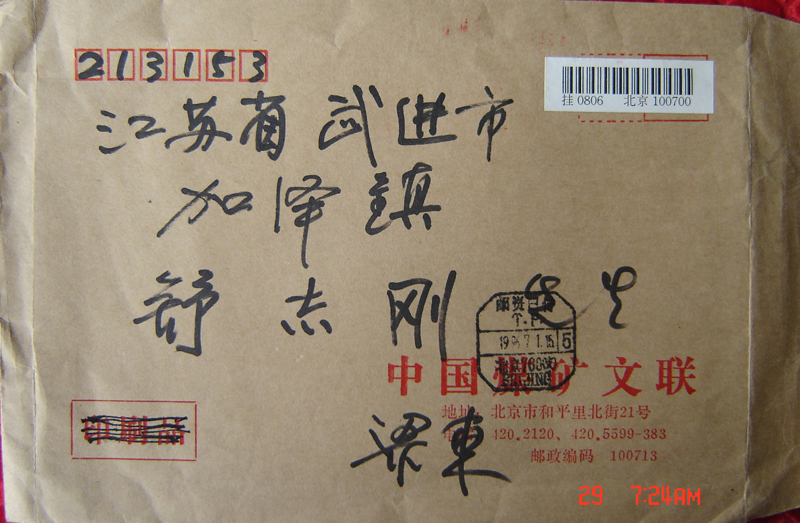 213153
挂0806 北京 100700
江苏省 武进市
加泽镇
舒志刚 先生
邮资已付
T.P.
5
BEIJING
中国煤矿文联
地址: 北京市和平里北街21号
电话: 420.2120、420.5599-383
邮政编码 100713
梁東
印刷品
29 7:24AM